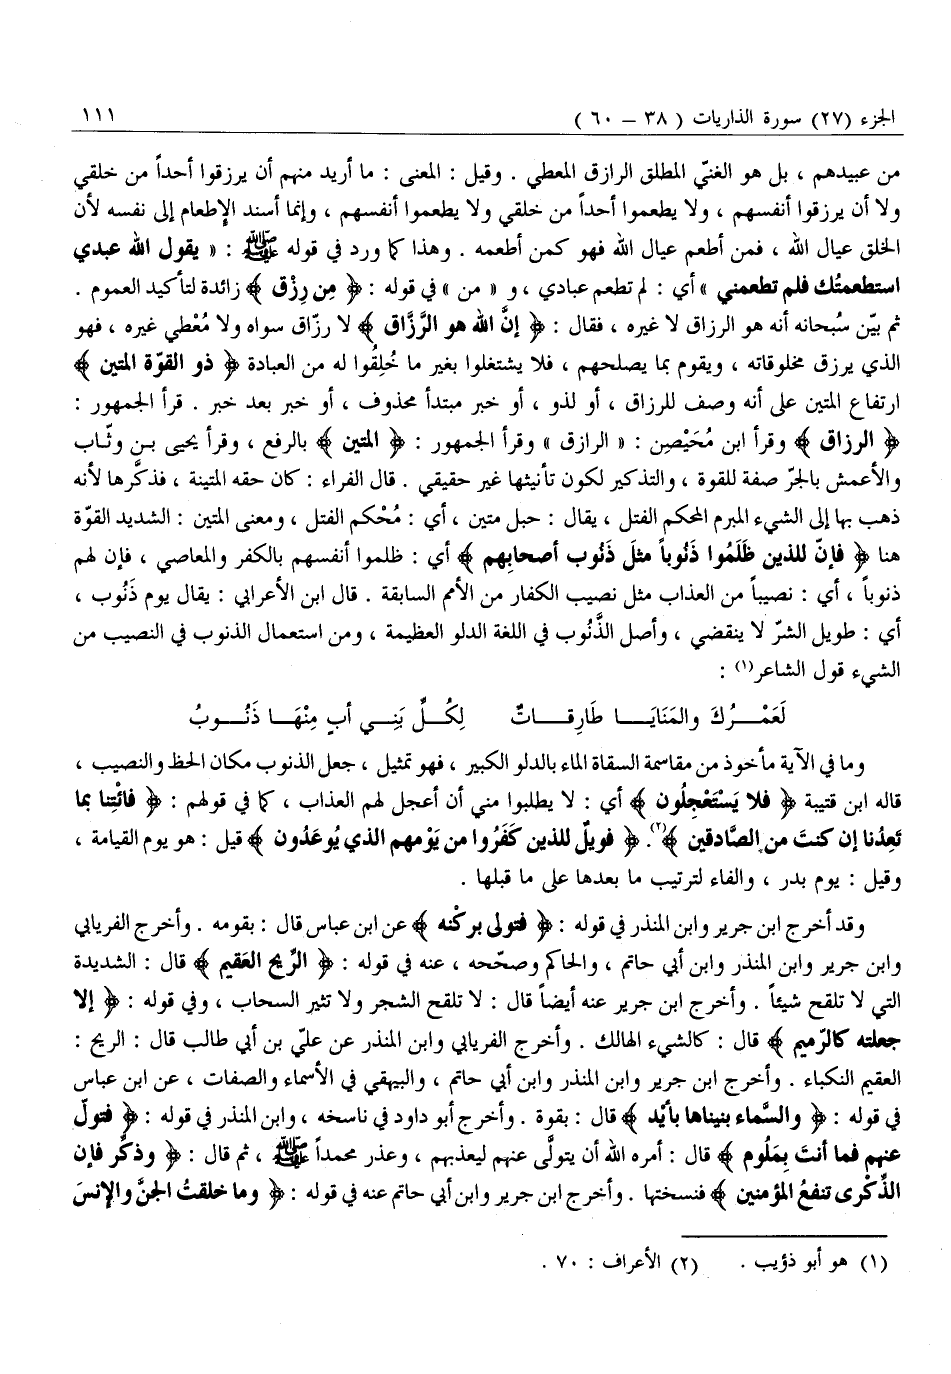 الجزء (٢٧) سورة الذاريات ( ٣٨ – ٦٠ ) ١١١
من عبيدهم ، بل هو الغنيّ المطلق الرازق المعطي . وقيل : المعنى : ما أريد منهم أن يرزقوا أحداً من خلقي
ولا أن يرزقوا أنفسهم ، ولا يطعموا أحداً من خلقي ولا يطعموا أنفسهم ، وإنما أسند الإطعام إلى نفسه لأن
الخلق عيال الله ، فمن أطعم عيال الله فهو كمن أطعمه . وهذا كما ورد في قوله ﷺ : « يقول الله عبدي
استطعمتُك فلم تطعمني » أي : لم تطعم عبادي ، و « من » في قوله : ﴿ مِن رِزْق ﴾ زائدة لتأكيد العموم .
ثم بيّن سُبحانه أنه هو الرزاق لا غيره ، فقال : ﴿ إنَّ الله هو الرَّزَّاق ﴾ لا رزّاق سواه ولا مُعْطي غيره ، فهو
الذي يرزق مخلوقاته ، ويقوم بما يصلحهم ، فلا يشتغلوا بغير ما خُلِقُوا له من العبادة ﴿ ذو القوّة المتين ﴾
ارتفاع المتين على أنه وصف للرزاق ، أو لذو ، أو خبر مبتدأ محذوف ، أو خبر بعد خبر . قرأ الجمهور :
﴿ الرزاق ﴾ وقرأ ابن مُحَيْصِن : « الرازق » وقرأ الجمهور : ﴿ المتين ﴾ بالرفع ، وقرأ يحيى بن وثّاب
والأعمش بالجرّ صفة للقوة ، والتذكير لكون تأنيثها غير حقيقي . قال الفراء : كان حقه المتينة ، فذكَّرها لأنه
ذهب بها إلى الشيء المبرم المحكم الفتل ، يقال : حبل متين ، أي : مُحْكم الفتل ، ومعنى المتين : الشديد القوّة
هنا ﴿ فإنّ للذين ظَلَمُوا ذَنُوباً مثلَ ذَنُوب أصحابِهم ﴾ أي : ظلموا أنفسهم بالكفر والمعاصي ، فإن لهم
ذنوباً ، أي : نصيباً من العذاب مثل نصيب الكفار من الأمم السابقة . قال ابن الأعرابي : يقال يوم ذَنُوب ،
أي : طويل الشرّ لا ينقضي ، وأصل الذَّنُوب في اللغة الدلو العظيمة ، ومن استعمال الذنوب في النصيب من
الشيء قول الشاعر(١) :
لَعَمْـرُكَ والمَنَايَـا طَارِقـاتٌ لِكُـلِّ بَنِـي أبٍ مِنْهَـا ذَنُـوبُ
وما في الآية مأخوذ من مقاسمة السقاة الماء بالدلو الكبير ، فهو تمثيل ، جعل الذنوب مكان الحظ والنصيب ،
قاله ابن قتيبة ﴿ فلا يَسْتَعْجِلُون ﴾ أي : لا يطلبوا مني أن أعجل لهم العذاب ، كما في قولهم : ﴿ فائْتِنا بما
تَعِدُنا إن كنتَ من الصَّادقين ﴾(٢). ﴿ فويلٌ للذين كَفَرُوا من يَوْمهم الذي يُوعَدُون ﴾ قيل : هو يوم القيامة ،
وقيل : يوم بدر ، والفاء لترتيب ما بعدها على ما قبلها .
وقد أخرج ابن جرير وابن المنذر في قوله : ﴿ فتولى بركْنه ﴾ عن ابن عباس قال : بقومه . وأخرج الفريابي
وابن جرير وابن المنذر وابن أبي حاتم ، والحاكم وصحّحه ، عنه في قوله : ﴿ الرِّيح العَقيم ﴾ قال : الشديدة
التي لا تلقح شيئاً . وأخرج ابن جرير عنه أيضاً قال : لا تلقح الشجر ولا تثير السحاب ، وفي قوله : ﴿ إلا
جعلته كالرّميم ﴾ قال : كالشيء الهالك . وأخرج الفريابي وابن المنذر عن عليّ بن أبي طالب قال : الريح :
العقيم النكباء . وأخرج ابن جرير وابن المنذر وابن أبي حاتم ، والبيهقي في الأسماء والصفات ، عن ابن عباس
في قوله : ﴿ والسَّماء بنيناها بأيْد ﴾ قال : بقوة . وأخرج أبو داود في ناسخه ، وابن المنذر في قوله : ﴿ فتولّ
عنهم فما أنتَ بِمَلُوم ﴾ قال : أمره الله أن يتولَّى عنهم ليعذبهم ، وعذر محمداً ﷺ ، ثم قال : ﴿ وذكِّر فإن
الذِّكْرى تنفعُ المؤمنين ﴾ فنسختها . وأخرج ابن جرير وابن أبي حاتم عنه في قوله : ﴿ وما خلقتُ الجنَّ والإنسَ
(١) هو أبو ذؤيب . (٢) الأعراف : ٧٠ .